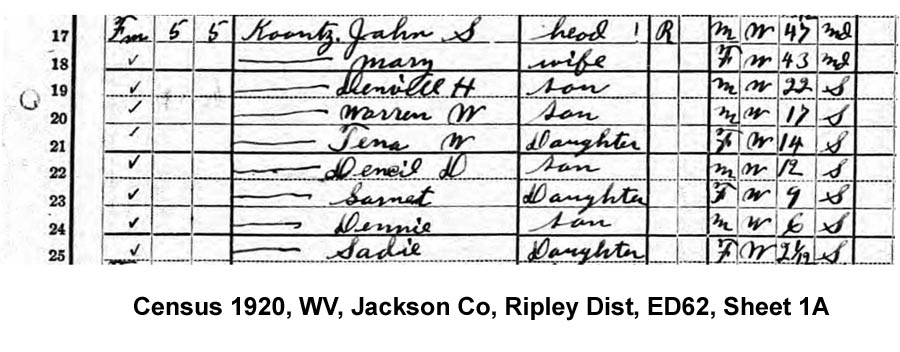 17 Fm 5 5 Koontz, John S head 1 R M W 47 Md
18 ✓ — Mary wife F W 43 Md
19 ✓ — Denville H son M W 22 S
20 ✓ — Warren W son M W 17 S
21 ✓ — Tena W Daughter F W 14 S
22 ✓ — Dencil D son M W 12 S
23 ✓ — Garnet Daughter F W 9 S
24 ✓ — Dennie son M W 6 S
25 ✓ — Sadie Daughter F W S
Census 1920, WV, Jackson Co, Ripley Dist, ED62, Sheet 1A